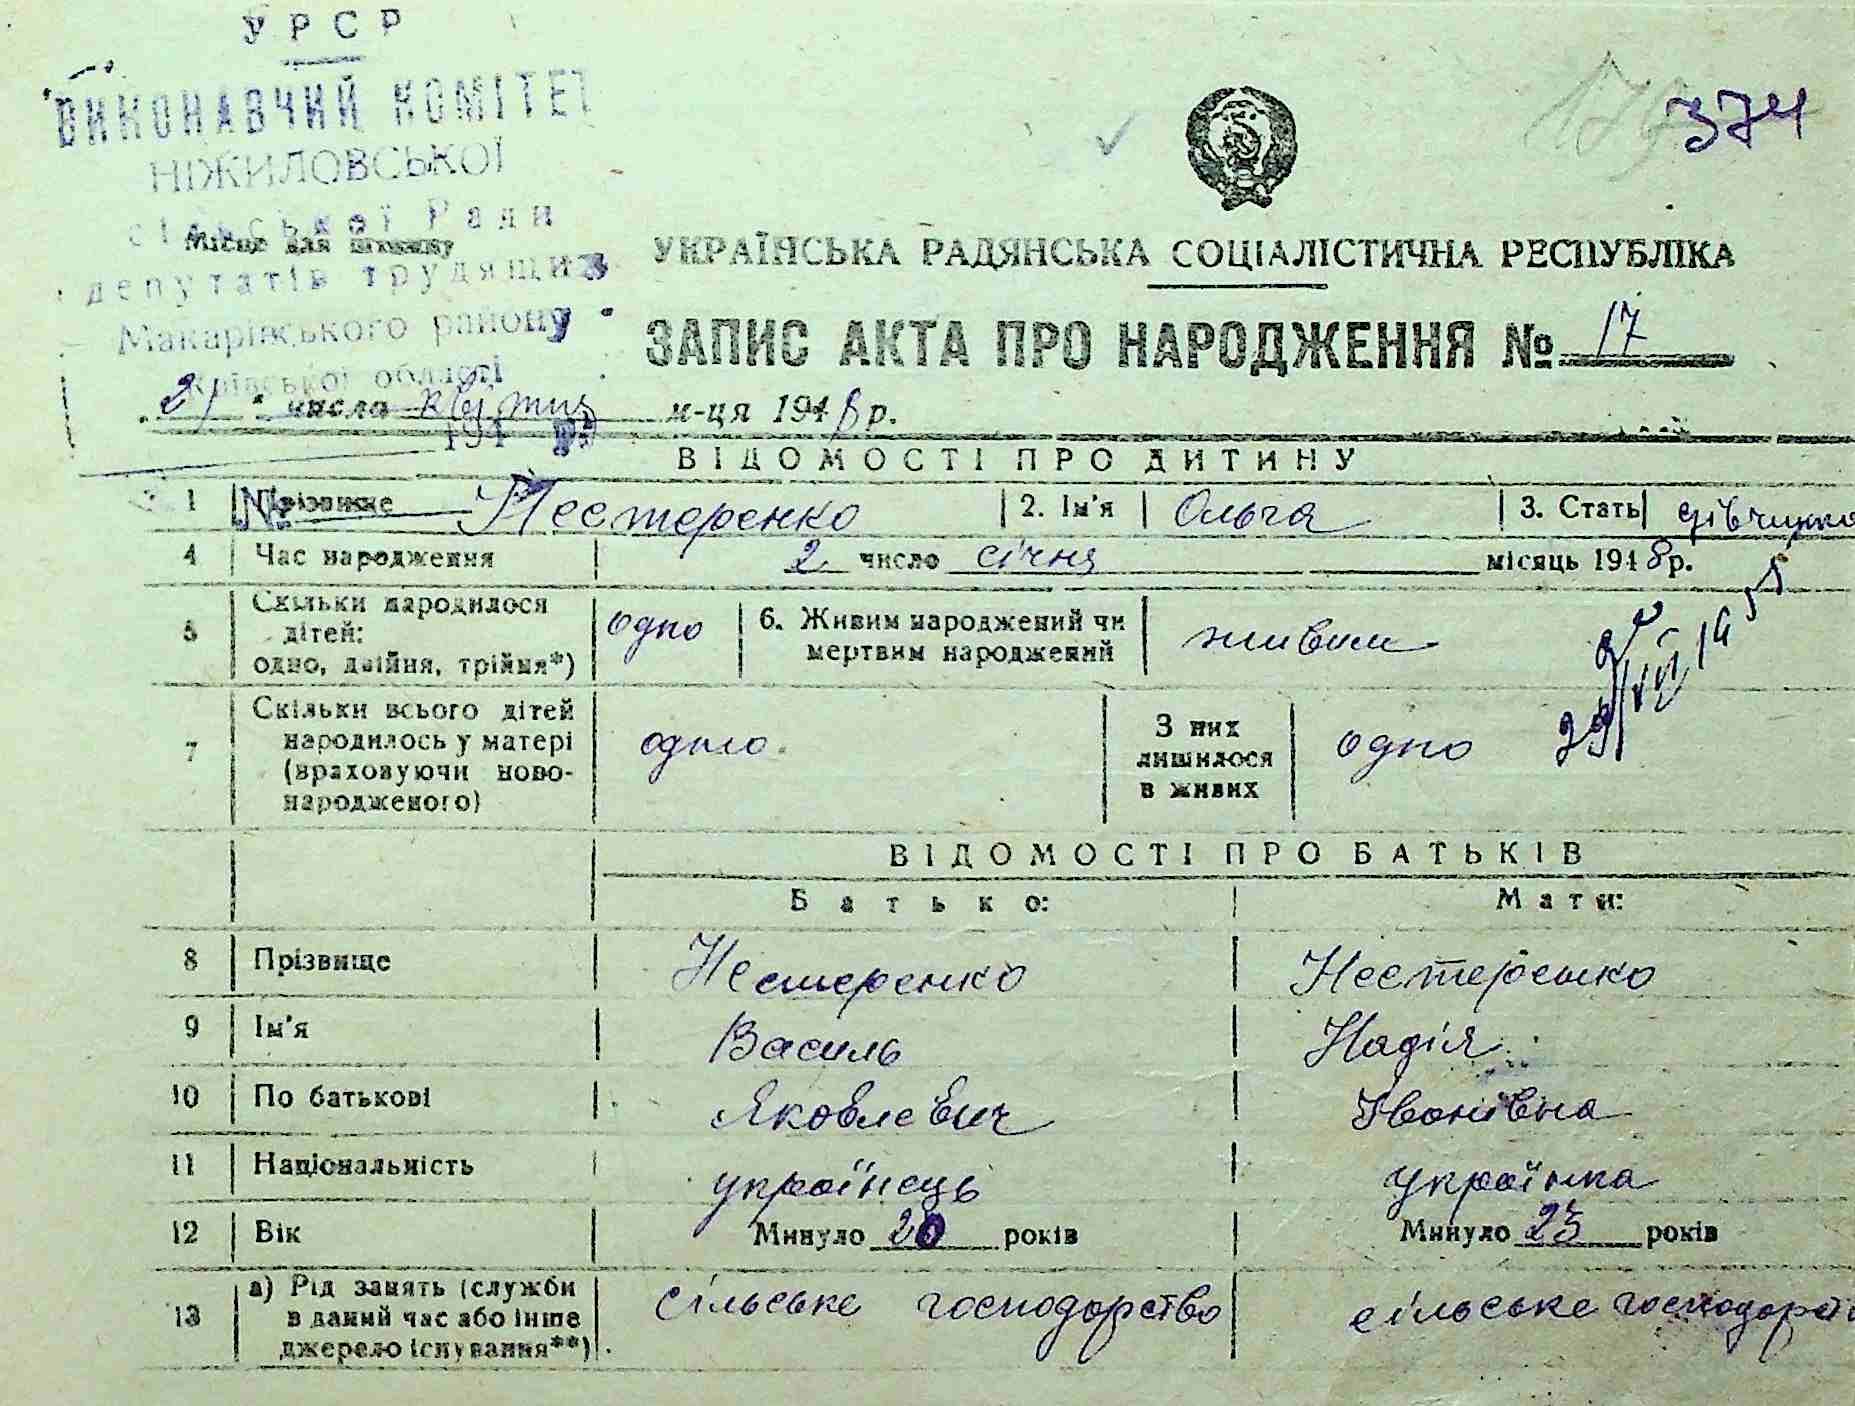 УРСР
ВИКОНАВЧИЙ КОМІТЕТ
НІЖИЛОВСЬКОЇ
сільської Ради
Місце для штампу
депутатів трудящих
Макарівського району
Київської області
194 р.
374
УКРАЇНСЬКА РАДЯНСЬКА СОЦІАЛІСТИЧНА РЕСПУБЛІКА
ЗАПИС АКТА ПРО НАРОДЖЕННЯ № 17
числа м-ця 1948 р.
ВІДОМОСТІ ПРО ДИТИНУ
1 Прізвище Нестеренко 2. Ім'я Ольга 3. Стать дівчинка
4 Час народження 2 число січня місяць 1948 р.
5 Скільки народилося дітей: одно, двійня, трійня*) одно 6. Живим народжений чи мертвим народжений живим
7 Скільки всього дітей народилось у матері (враховуючи новонародженого) одно З них лишилося в живих одно
ВІДОМОСТІ ПРО БАТЬКІВ
Батько: Мати:
8 Прізвище Нестеренко Нестеренко
9 Ім'я Василь Надія
10 По батькові Яковлевич Іванівна
11 Національність українець українка
12 Вік Минуло 20 років Минуло 23 років
13 а) Рід занять (служби в даний час або інше джерело існування**) сільське господарство сільське господарст